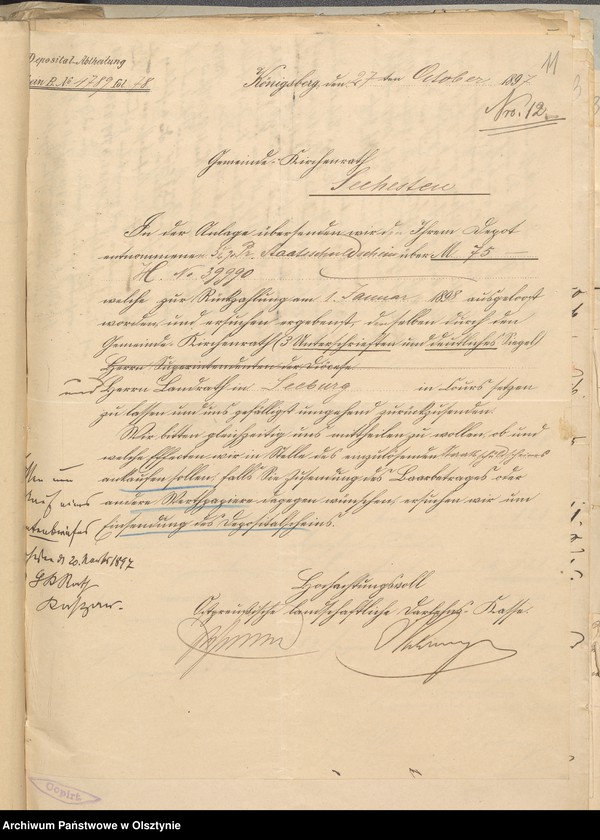 Deposital-Abtheilung
B. No 1789 Fol 28
Königsberg, den 27ten October 1897
11
Nro. 12
Gemeinde-Kirchenrath
Seehesten
In der Anlage übersenden wir den Ihrem Depot
entnommenen Staatsschuldschein über M. 75 —
H. No 39990
welche zur Rückzahlung am 1. Januar 1898 ausgeloost
worden, und ersuchen ergebenst, denselben durch den
Gemeinde-Kirchenrath (3 Unterschriften und deutliches Siegel)
Herrn Superintendenten der Diöcese
und Herrn Landrath in Seeburg in Cours setzen
zu lassen und uns gefälligst umgehend zurückzusenden.
Wir bitten gleichzeitig uns mittheilen zu wollen, ob und
welche Effecten wir in Stelle des einzulösenden Staatsschuldscheins
ankaufen sollen, falls Sie Zusendung des Baarbetrages oder
andere Werthpapiere dagegen wünschen, ersuchen wir um
Einsendung des Depositalscheins.
20. 1897
G K Rath
Hochachtungsvoll
Ostpreußische landschaftliche Darlehns-Kasse.
Copirt.
Archiwum Państwowe w Olsztynie